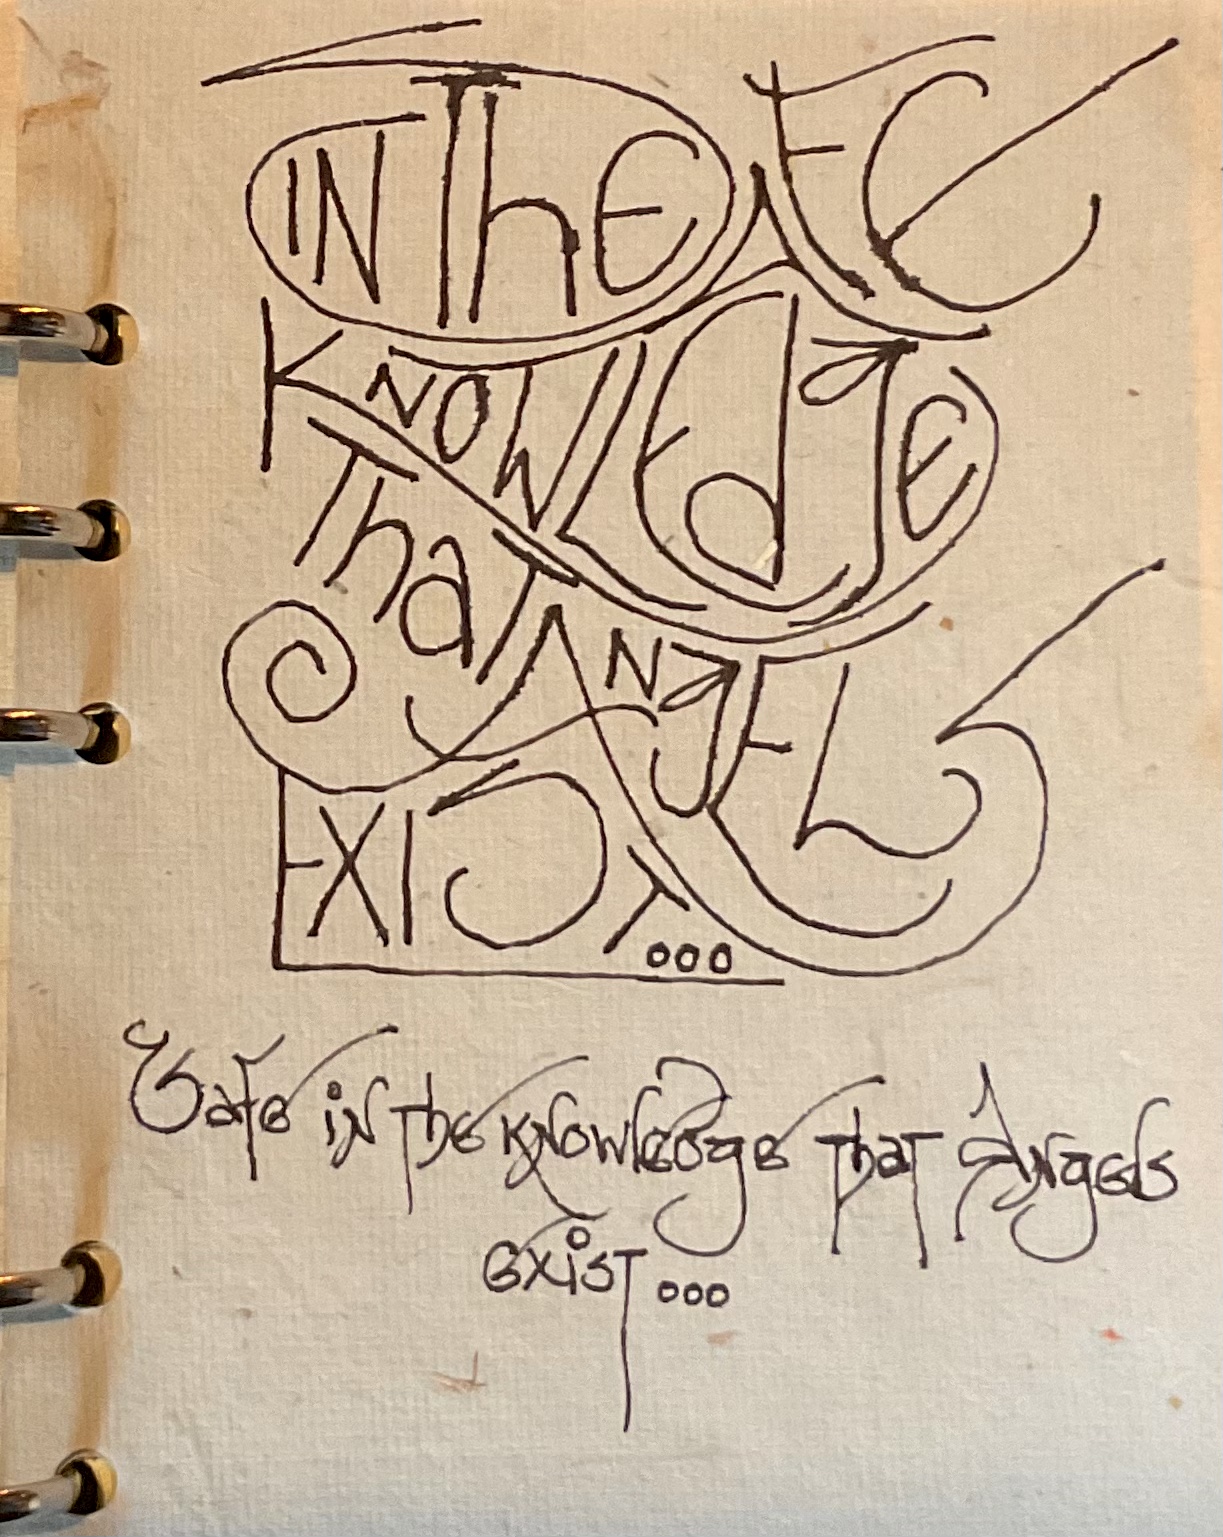 SAFE
IN The
KNOWLEdgE
That
ANgELS
EXIST...
Safe in The knowledge that Angels
exist...